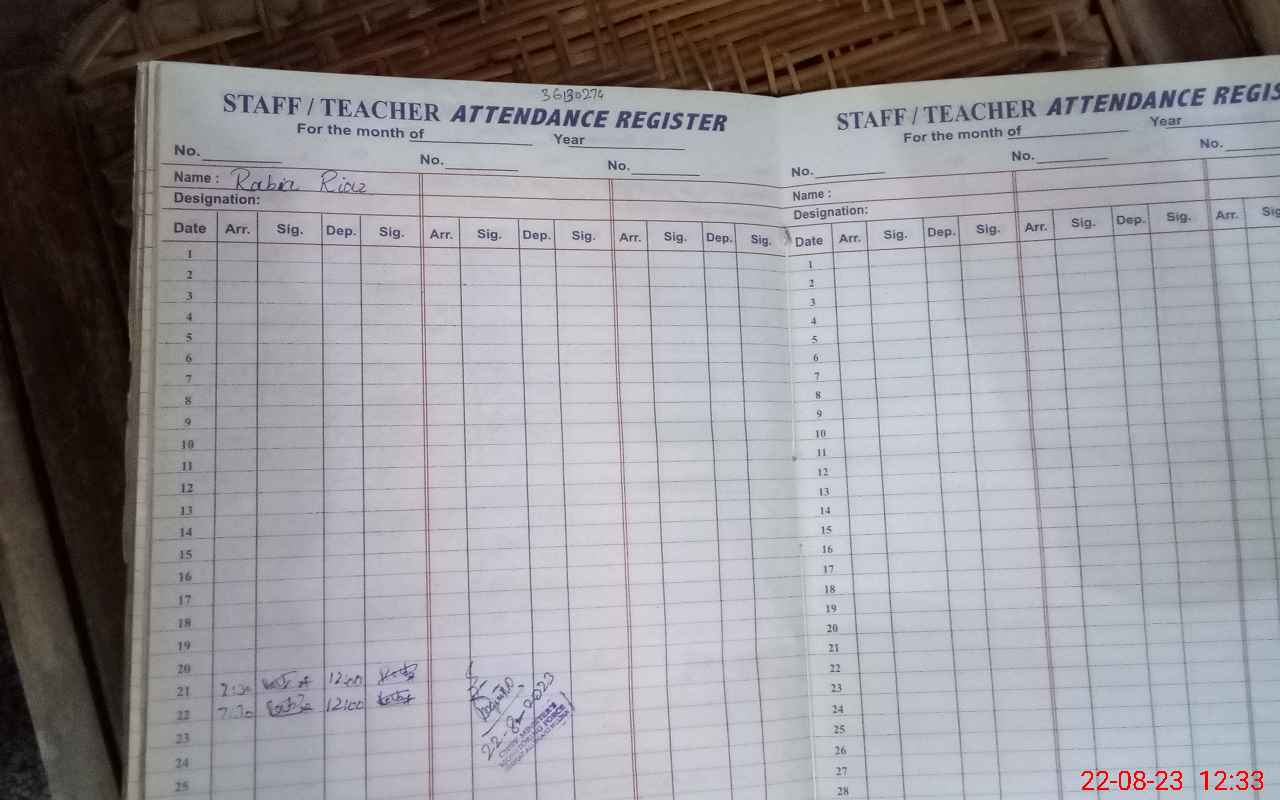 36130274
STAFF / TEACHER ATTENDANCE REGISTER
For the month of Year
No. No. No.
Name : Rabia Riaz
Designation:
Date Arr. Sig. Dep. Sig. Arr. Sig. Dep. Sig. Arr. Sig. Dep. Sig.
1
2
3
4
5
6
7
8
9
10
11
12
13
14
15
16
17
18
19
20
21 7:30 12:00
22 7:30 12:00
23
24
25
22-8-2023
CHIEF MINISTER'S
MONITORING FORCE
STAFF / TEACHER ATTENDANCE REGIS
For the month of Year
No. No. No.
Name :
Designation:
Date Arr. Sig. Dep. Sig. Arr. Sig. Dep. Sig. Arr. Sig
1
2
3
4
5
6
7
8
9
10
11
12
13
14
15
16
17
18
19
20
21
22
23
24
25
26
27
28
22-08-23 12:33